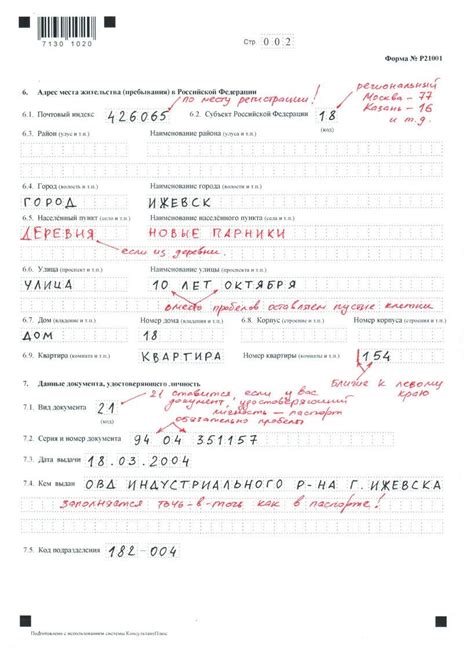 7130 1020
Стр. 002
Форма № Р21001
6. Адрес места жительства (пребывания) в Российской Федерации
по месту регистрации!
региональный
Москва - 77
Казань - 16
и т.д.
6.1. Почтовый индекс 426065 6.2. Субъект Российской Федерации 18
(код)
6.3. Район (улус и т.п.) Наименование района (улуса и т.п.)
6.4. Город (волость и т.п.) Наименование города (волости и т.п.)
ГОРОД ИЖЕВСК
6.5. Населённый пункт (село и т.п.) Наименование населённого пункта (села и т.п.)
ДЕРЕВНЯ НОВЫЕ ПАРНИКИ
если из деревни.
6.6. Улица (проспект и т.п.) Наименование улицы (проспекта и т.п.)
УЛИЦА 10 ЛЕТ ОКТЯБРЯ
вместо пробелов оставляем пустые клетки
6.7. Дом (владение и т.п.) Номер дома (владения и т.п.) 6.8. Корпус (строение и т.п.) Номер корпуса (строения и т.п.)
ДОМ 18
6.9. Квартира (комната и т.п.) КВАРТИРА Номер квартиры (комнаты и т.п.) 154
Ближе к левому
краю
7. Данные документа, удостоверяющего личность
21 ставится, если у вас
документ, удостоверяющий
личность - паспорт
7.1. Вид документа 21
(код)
обязательно пробелы
7.2. Серия и номер документа 94 04 351157
7.3. Дата выдачи 18.03.2004
7.4. Кем выдан ОВД ИНДУСТРИАЛЬНОГО Р-НА Г. ИЖЕВСКА
заполняется точь-в-точь как в паспорте!
7.5. Код подразделения 182-004
Подготовлено с использованием системы КонсультантПлюс